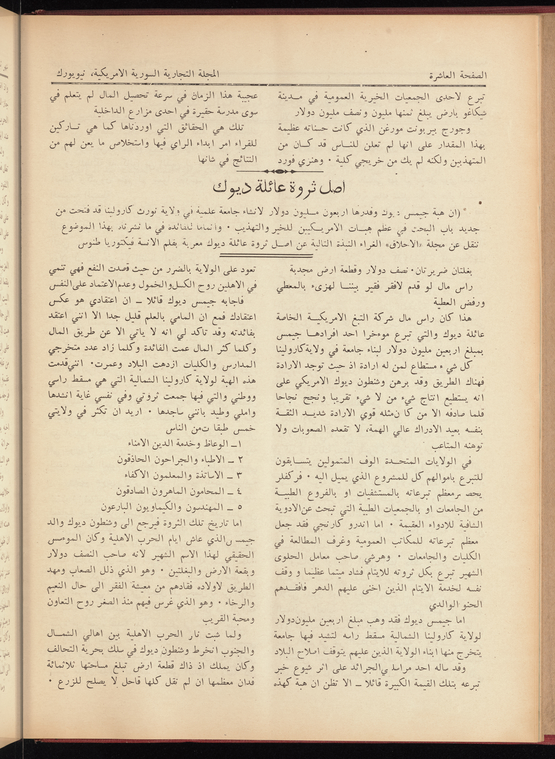 الصفحة العاشرة
المجلة التجارية السورية الامريكية، نيويورك
تبرع لاحدى الجمعيات الخيرية العمومية في مدينة
شيكاغو بارض يبلغ ثمنها مليون ونصف مليون دولار
وجورج بيربونت مورغن الذي كانت حسناته عظيمة
بهذا المقدار على انها لم تعلن للناس قد كان من
المتهذبين ولكنه لم يك من خريجي كلية ٠ وهنري فورد
عجيبة هذا الزمان في سرعة تحصيل المال لم يتعلم في
سوى مدرسة حقيرة في احدى مزارع الداخلية
تلك هي الحقائق التي اوردناها كما هي تاركين
للقراء امر ابداء الراي فيها واستخلاص ما يعن لهم من
النتائج في شانها
اصل ثروة عائلة ديوك
" (ان هبة جيمس ديوك وقدرها اربعون مليون دولار لانشاء جامعة علمية في ولاية نورث كارولينا قد فتحت من
جديد باب البحث في عظم هبات الامريكيين للخير والتهذيب ٠ واتماما للفائدة في ما نشرناه بهذا الموضوع
ننقل عن مجلة «الاخلاق» الغراء النبذة التالية عن اصل ثروة عائلة ديوك معربة بقلم الانسة فيكتوريا طنوس
بغلتان ضريرتان٠ نصف دولار وقطعة ارض مجدبة
راس مال لو قدم لافقر فقير بيننا لهزىء بالمعطي
ورفض العطية
هذا كان راس مال شركة التبغ الامريكية الخاصة
عائلة ديوك والتي تبرع موءخرا احد افرادها جيمس
بمبلغ اربعين مليون دولار لبناء جامعة في ولاية كارولينا
كل شيء مستطاع لمن له ارادة اذ حيث توجد الارادة
فهناك الطريق وقد برهن وشنطون ديوك الامريكي على
انه يستطيع انتاج شيء من لا شيء تقريبا ونجح نجاحا
قلما صادفه الا من كان مثله قوي الارادة شديد الثقة
بنفسه بعيد الادراك عالي الهمة، لا تقعده الصعوبات ولا
توهنه المتاعب
في الولايات المتحدة الوف المتمولين يتسابقون
للتبرع باموالهم كل للمشروع الذي يميل اليه ٠ فركفلر
يحصر معظم تبرعاته بالمستشفيات او بالفروع الطبية
من الجامعات او بالجمعيات الطبية التي تبحث عن الادوية
الشافية للادواء العقيمة ٠ اما اندرو كارنجي فقد جعل
معظم تبرعاته للمكاتب العمومية وغرف المطالعة في
الكليات والجامعات ٠ وهرشي صاحب معامل الحلوى
الشهير تبرع بكل ثروته للايتام فشاد ميتما عظيما و وقف
نفسه لخدمة الايتام الذين اخنى عليهم الدهر فافقدهم
الحنو الوالدي
اما جيمس ديوك فقد وهب مبلغ اربعين مليون دولار
لولاية كارولينا الشمالية مسقط راسه لتشيد فيها جامعة
يتخرج منها ابناء الولاية الذين عليهم يتوقف اصلاح البلاد
وقد ساله احد مراسلي الجرائد على اثر شيوع خبر
تبرعه بتلك القيمة الكبيرة قائلا ــ الا تظن ان هبة كهذه
تعود على الولاية بالضرر من حيث قصدت النفع فهي تنمي
في الاهلين روح الكسل والخمول وعدم الاعتماد على النفس
فاجابه جيمس ديوك قائلا ــ ان اعتقادي هو عكس
اعتقادك فمع ان المامي بالعلم قليل جدا الا انني اعتقد
بفائدته وقد تاكد لي انه لا ياتي الا عن طريق المال
وكلما كثر المال عمت الفائدة وكلما زاد عدد متخرجي
المدارس والكليات ازدهت البلاد وعمرت٠ انني قدمت
هذه الهبة لولاية كارولينا الشمالية التي هي مسقط راسي
ووطني والتي فيها جمعت ثروتي وفي نفسي غاية انشدها
واملي وطيد بانني ساجدها ٠ اريد ان تكثر في ولايتي
خمس طبقات من الناس
١ــ الوعاظ وخدمة الدين الامناء
٢ ــ الاطباء والجراحون الحاذقون
٣ ــ الاساتذة والمعلمون الاكفاء
٤ ــ المحامون الماهرون الصادقون
٥ ــ المهندسون والكيماويون البارعون
اما تاريخ تلك الثروة فيرجع الى وشنطون ديوك والد
جيمس الذي عاش ايام الحرب الاهلية وكان الموءسس
الحقيقي لهذا الاسم الشهير لانه صاحب النصف دولار
وبقعة الارض والبغلتين ٠ وهو الذي ذلل الصعاب ومهد
الطريق لاولاده فقادهم من معيشة الفقر الى حال النعيم
والرخاء ٠ وهو الذي غرس فيهم منذ الصغر روح التعاون
ومحبة القريب
ولما شبت نار الحرب الاهلية بين اهالي الشمال
والجنوب انخرط وشنطون ديوك في سلك بحرية التحالف
وكان يملك اذ ذاك قطعة ارض تبلغ مساحتها ثلاثمائة
فدان معظمها ان لم نقل كلها قاحل لا يصلح للزرع ٠